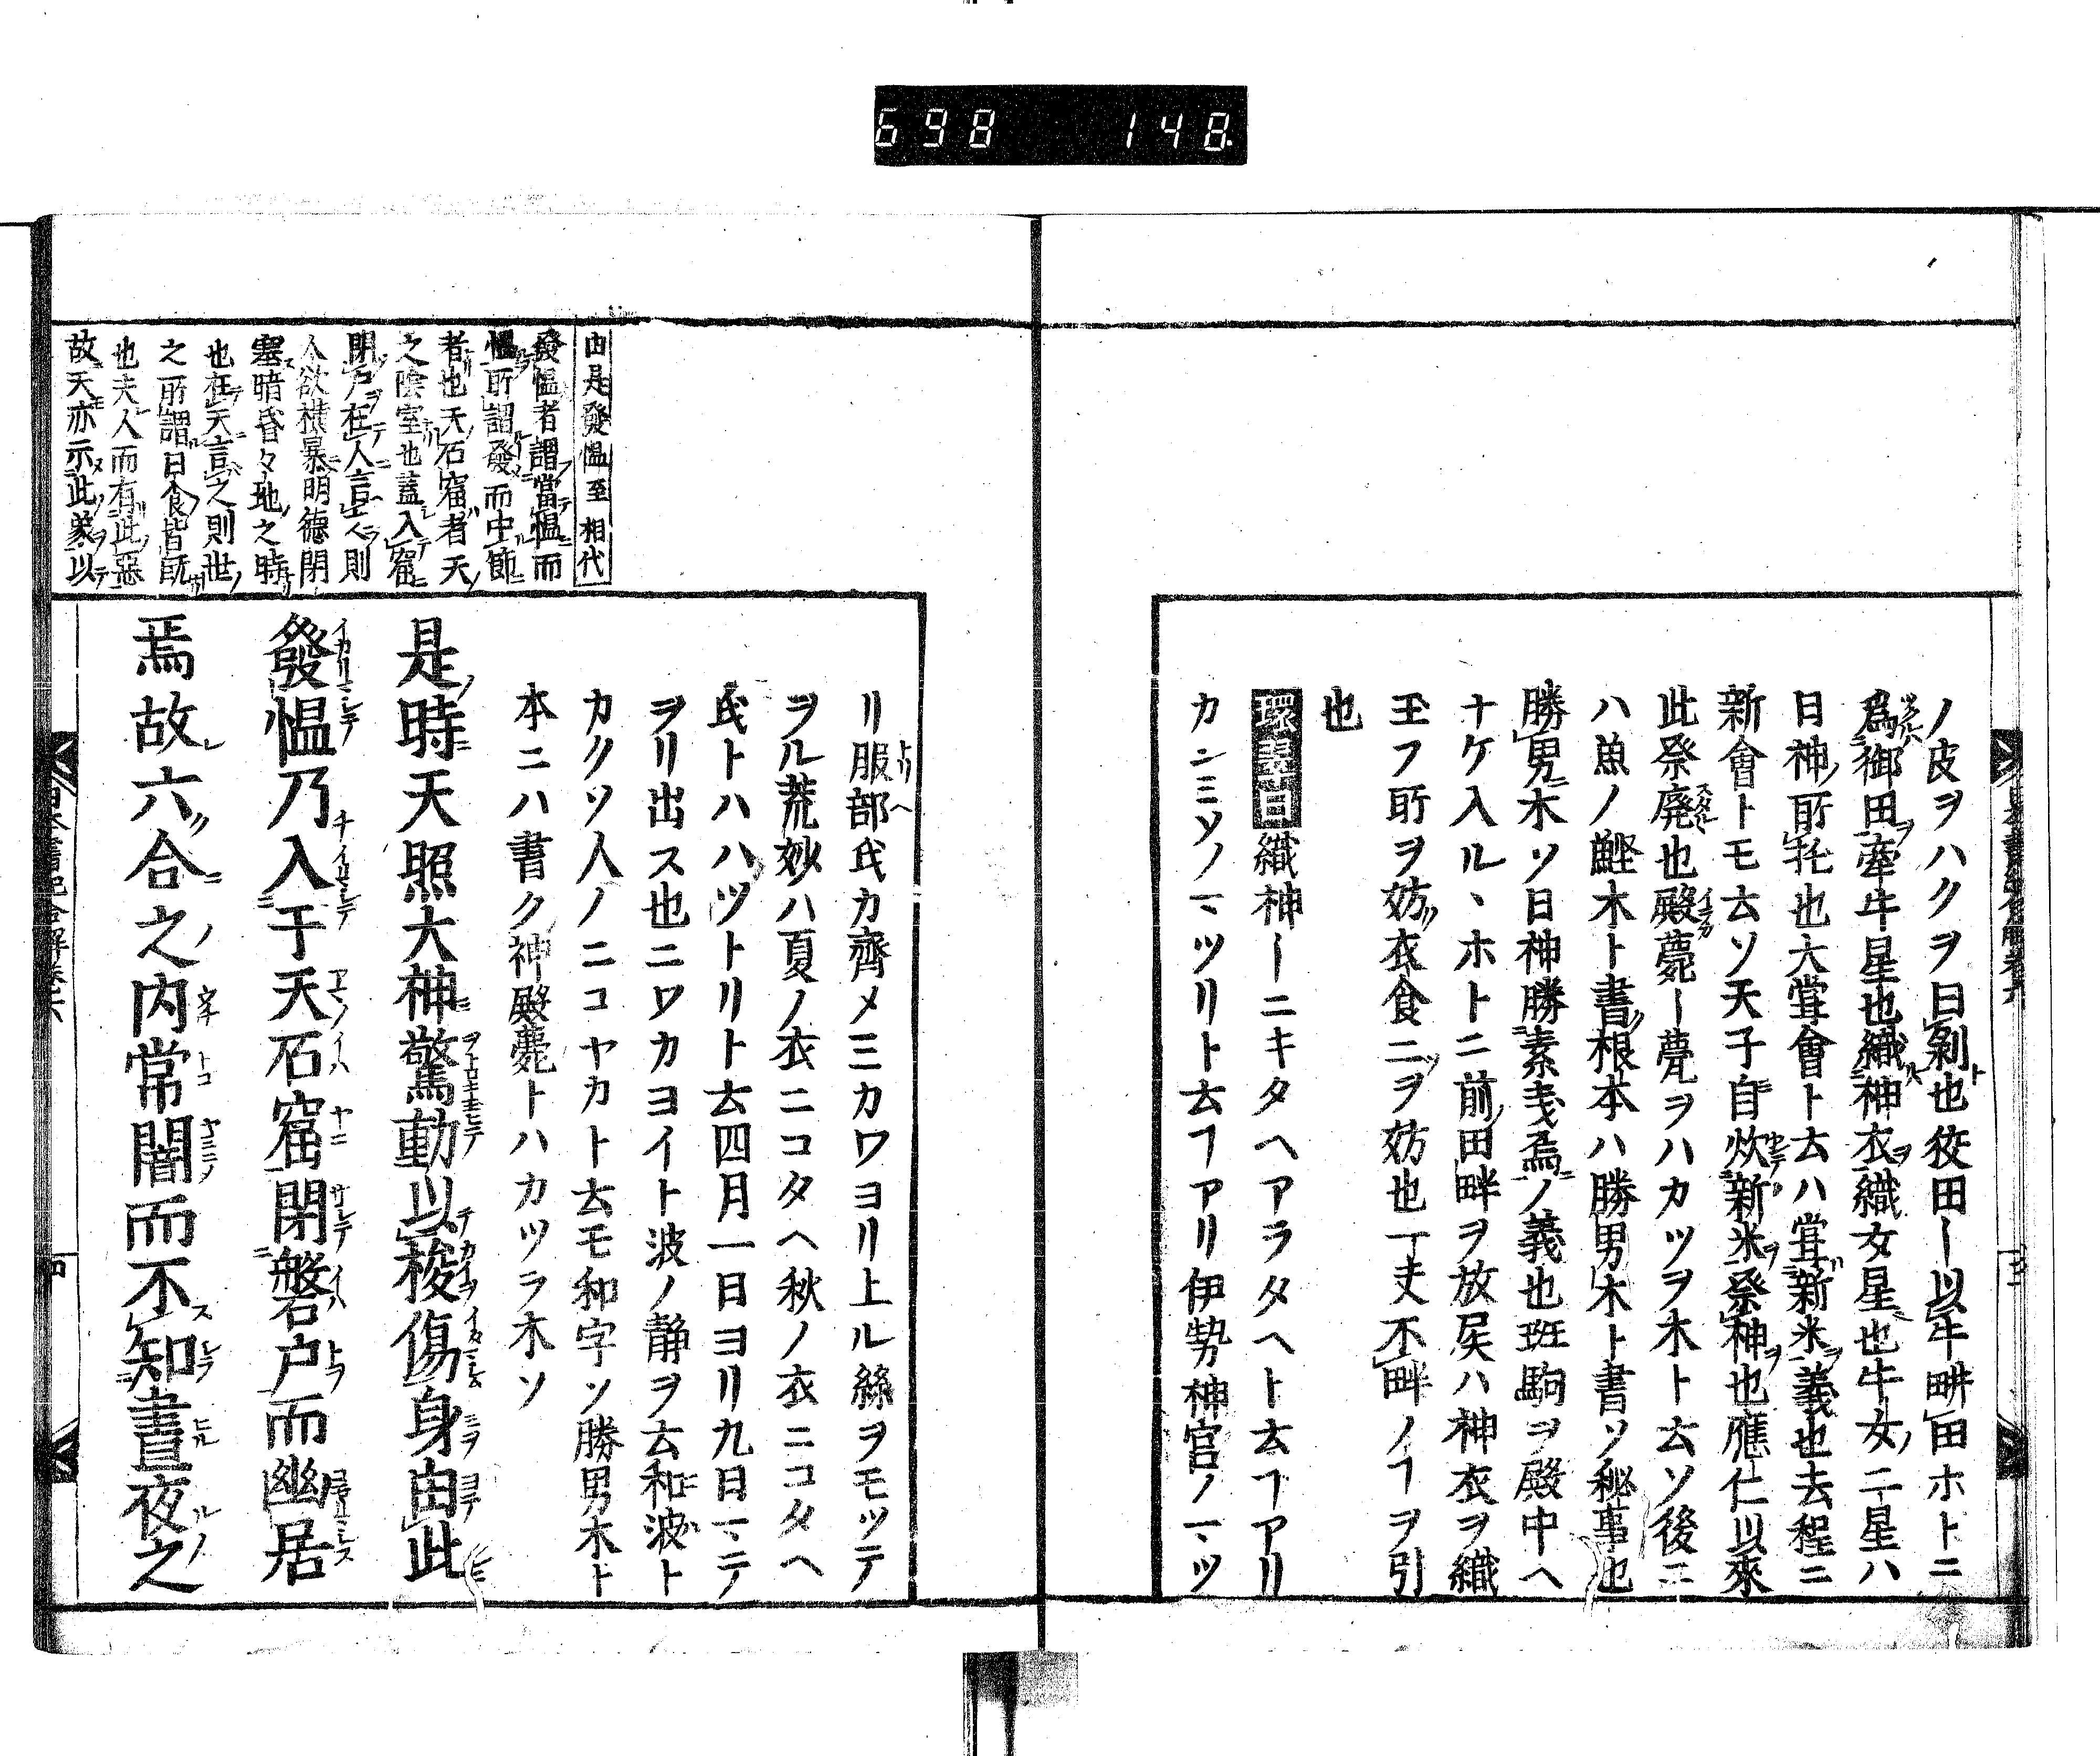 698 148
ノ皮ヲハクヲ曰剝也狡田ー以牛畊田ホトニ
爲御田牽牛星也織神衣織女星也牛女ノ二星ハ
日神ノ所托也大甞會ト云ハ甞新米義也去程ニ
新會トモ云ソ天子自炊新米祭神也應仁以來
此祭廃也殿甍ー甍ヲハカツヲ木ト云ソ後ニ
ハ魚ノ鰹木ト書根本ハ勝男木ト書ソ秘事也
勝男木ソ日神勝素戔烏ノ義也班駒ヲ殿中ヘ
ナケ入ル丶ホトニ前田畔ヲ放屎ハ神衣ヲ織
玉フ所ヲ妨衣食二ヲ妨也一丈不畔ノヿヲ引
也
環翠曰織神ーニキタヘアラタヘト云ヿアリ
カンミソノマツリト云ヿアリ伊勢神宮ノマツ
リ服部氏カ齊メミカワヨリ上ル絲ヲモッテ
ヲル荒妙ハ夏ノ衣ニコタヘ秋ノ衣ニコタヘ
氏トハハツトリト云四月一日ヨリ九日マテ
ヲリ出ス也ニワカヨイト波ノ静ヲ云和波ト
カクソ人ノニコヤカト云モ和字ソ勝男木ト
本ニハ書ク神殿甍トハカツラ木ソ
是時天照大神驚動以梭傷身由此
發愠乃入于天石窟閉磐戸而幽居
焉故六合之内常闇而不知晝夜之
由是發愠至相代
發愠者謂當愠而
愠所謂發而中節
者也天石窟者天
之陰室也蓋入窟
閉戸在人言之則
人欲横暴明德閉
塞暗昏々地之時
也在天言之則世
之所謂日食皆既
也夫人而有此惡
故天亦示此象以